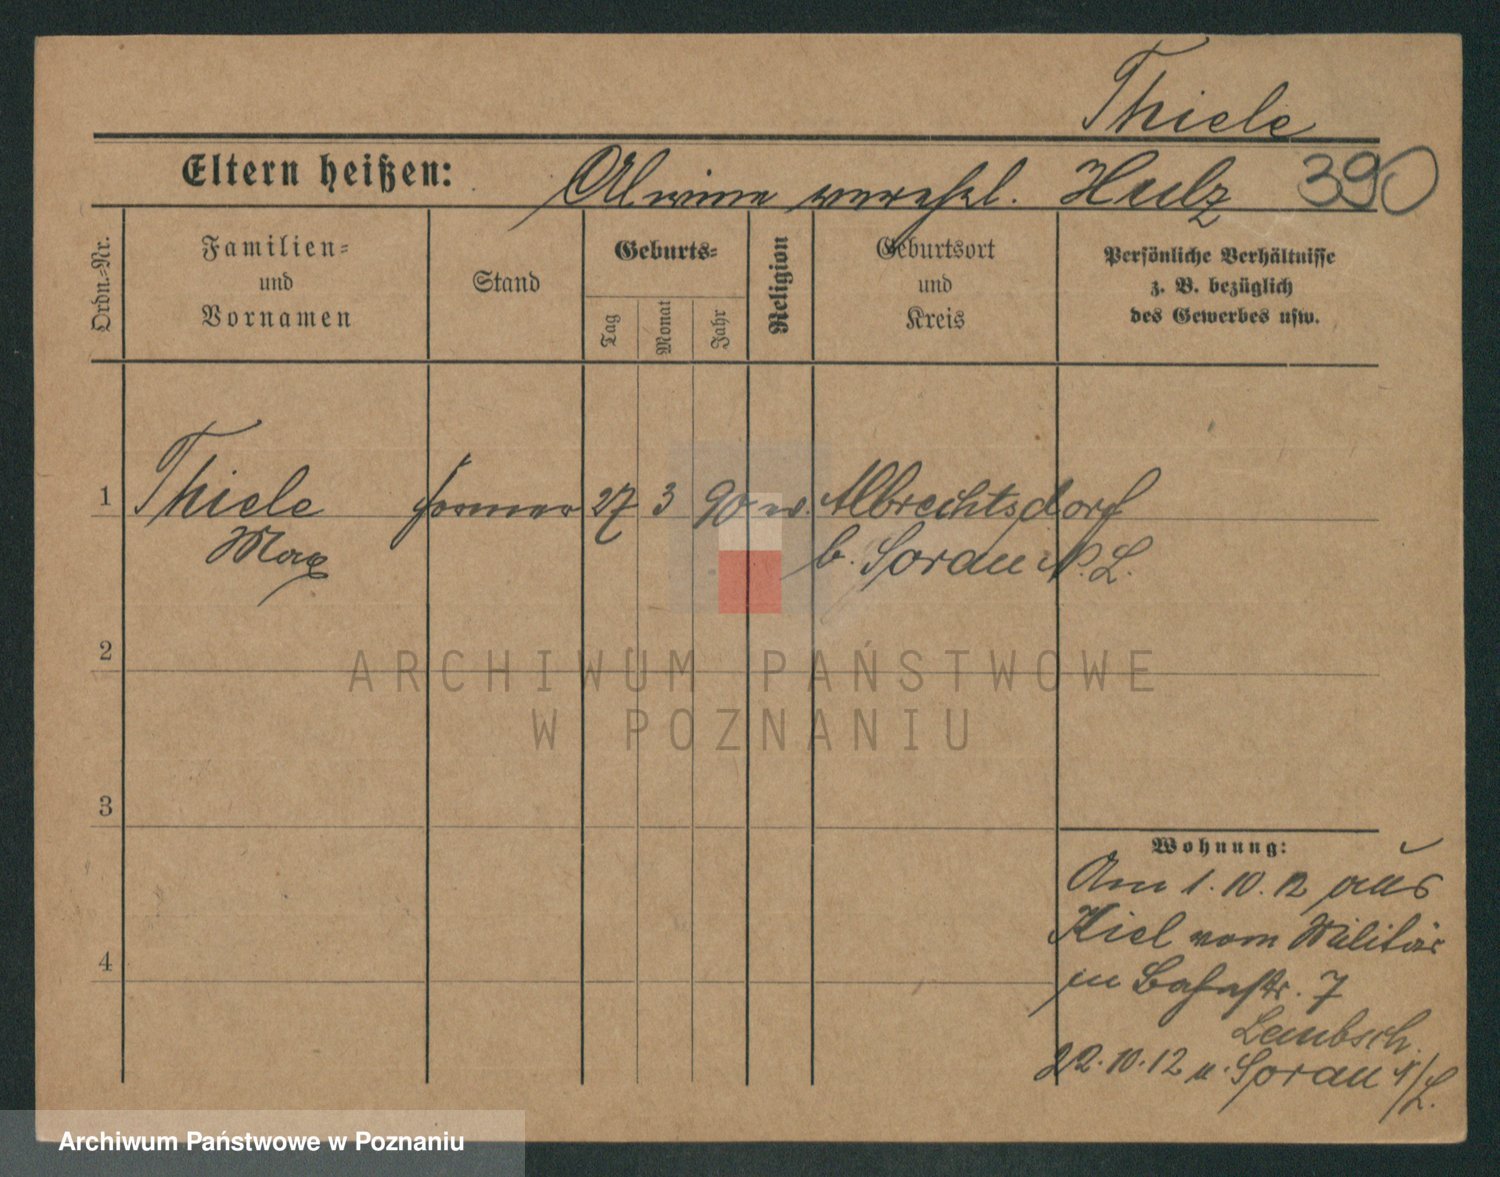 Thiele
Eltern heißen: Alwine verehl. Hulz 390
Ordn.-Nr.
Familien-
und
Vornamen
Stand
Geburts-
Tag
Monat
Jahr
Religion
Geburtsort
und
Kreis
Persönliche Verhältnisse
z. B. bezüglich
des Gewerbes usw.
1 Thiele Former 27 3 90 ev. Albrechtsdorf
Max b. Sorau N. L.
2
ARCHIWUM PAŃSTWOWE
W POZNANIU
3
Wohnung:
Am 1. 10. 12 aus
Kiel vom Militär
4
in Bahnstr. 7
22. 10. 12 n. Sorau N/L.
Archiwum Państwowe w Poznaniu